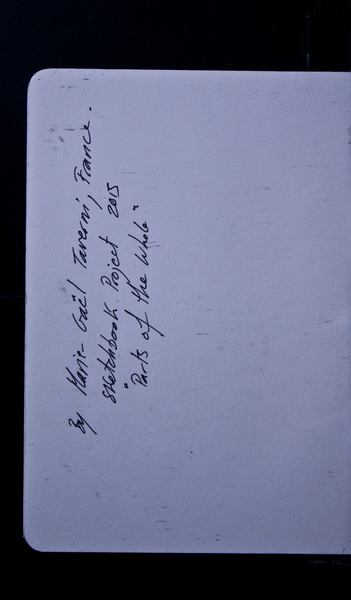 By Marie-Gaël Taverni, France.
Sketchbook Project 2015
"Parts of the Whole"